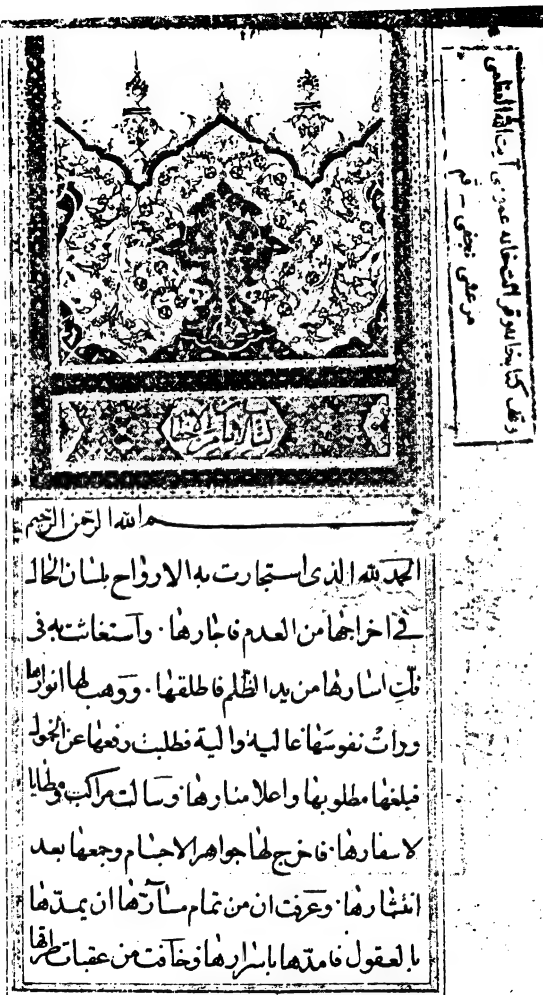 وقف کتابخانه و قرائت خانه عمومی آیت الله العظمی
مرعشی نجفی - قم
كتاب الامان من الاخطار
بسم الله الرحمن الرحيم
الحمد لله الذى استجارت به الارواح بلسان الحال
فى اخراجها من العدم فاجارها. واستغاثت به فى
فك اسارها من يد الظلم فاطلقها. ووهب لها انوارها
ورات نفوسها عالية والية فطلبت رفعها عن الخمول
فبلغها مطلوبها واعلا منارها. وسالت مراكب ومطايا
لاسفارها. فاخرج لها جواهر الاجسام وجمعها بعد
انتثارها. وعرفت ان من تمام مسارّها ان يمدّها
بالعقول فامدّها باسرارها. وخافت من عقبات طرقها